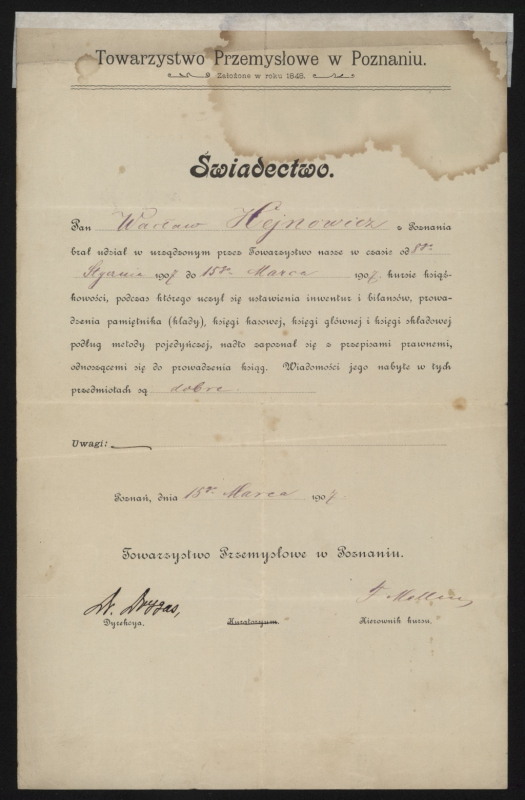 Towarzystwo Przemysłowe w Poznaniu.
Założone w roku 1848.
Świadectwo.
Pan Wacław Hejnowicz z Poznania
brał udział w urządzonym przez Towarzystwo nasze w czasie od 8go
Stycznia 1907 do 15go Marca 1907. kursie książ-
kowości, podczas którego uczył się ustawienia inwentur i bilansów, prowa-
dzenia pamiętnika (kłady), księgi kasowej, księgi głównej i księgi składowej
podług metody pojedyńczej, nadto zapoznał się z przepisami prawnemi,
odnoszącemi się do prowadzenia ksiąg. Wiadomości jego nabyte w tych
przedmiotach są dobre.
Uwagi:
Poznań, dnia 15go Marca 1907.
Towarzystwo Przemysłowe w Poznaniu.
Dyrekcya. Kuratoryum. Kierownik kursu.